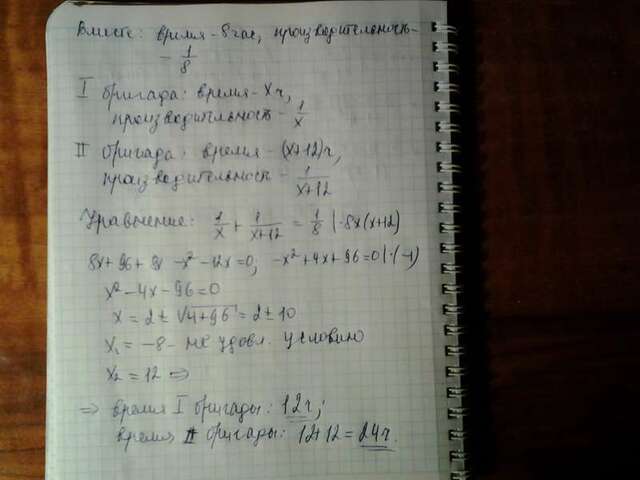 Вместе: время - 8 час, производительность -
- 1/8
I бригада: время - x ч,
производительность - 1/x
II бригада: время - (x+12) ч,
производительность - 1/(x+12)
Уравнение: 1/x + 1/(x+12) = 1/8 | ·8x(x+12)
8x + 96 + 8x - x² - 12x = 0; -x² + 4x + 96 = 0 | ·(-1)
x² - 4x - 96 = 0
x = 2 ± √(4+96) = 2 ± 10
x₁ = -8 - не удовл. условию
x₂ = 12 ⇒
⇒ время I бригады: 12 ч;
время II бригады: 12+12 = 24 ч.